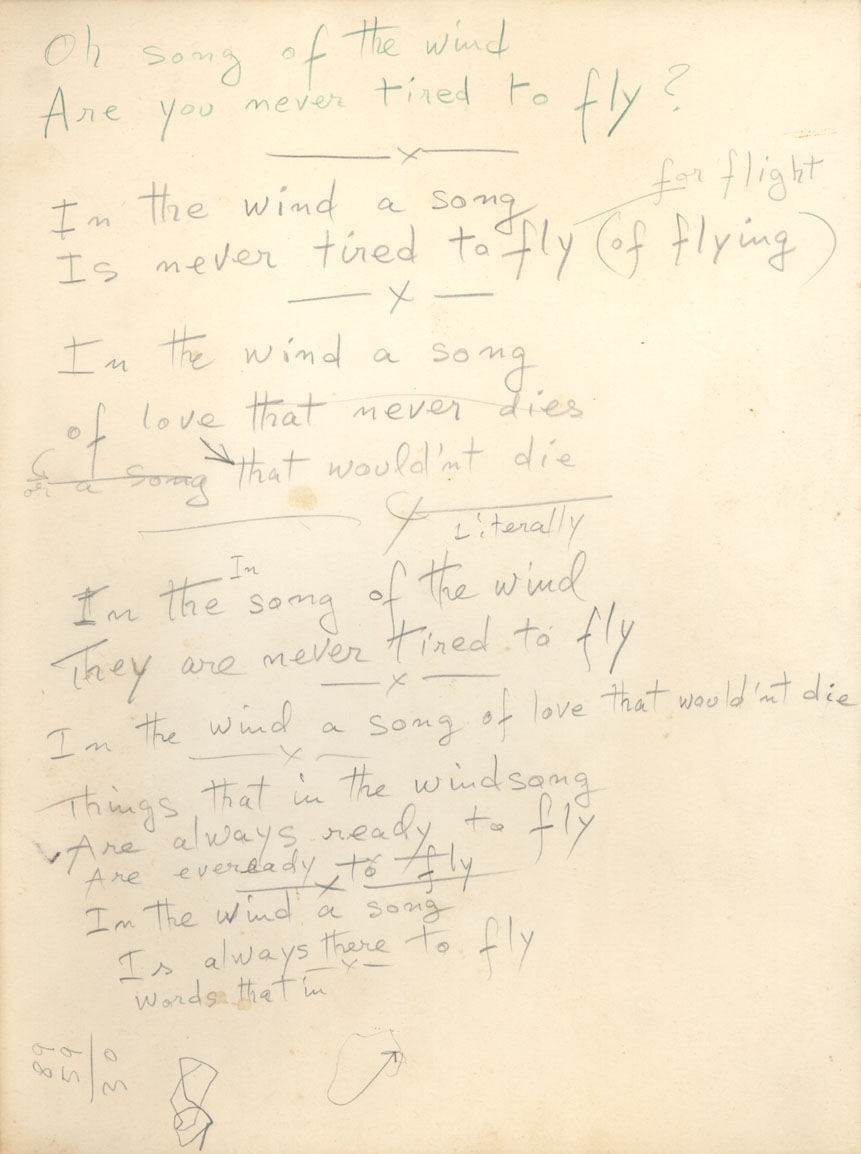 Oh song of the wind
Are you never tired to fly?
for flight
In the wind a song
Is never tired to fly (of flying)
In the wind a song
of love that never dies
or a song that would'nt die
Literally
In
In the song of the wind
They are never tired to fly
In the wind a song of love that would'nt die
Things that in the windsong
Are always ready to fly
Are eveready to fly
In the wind a song
Is always there to fly
Words that in